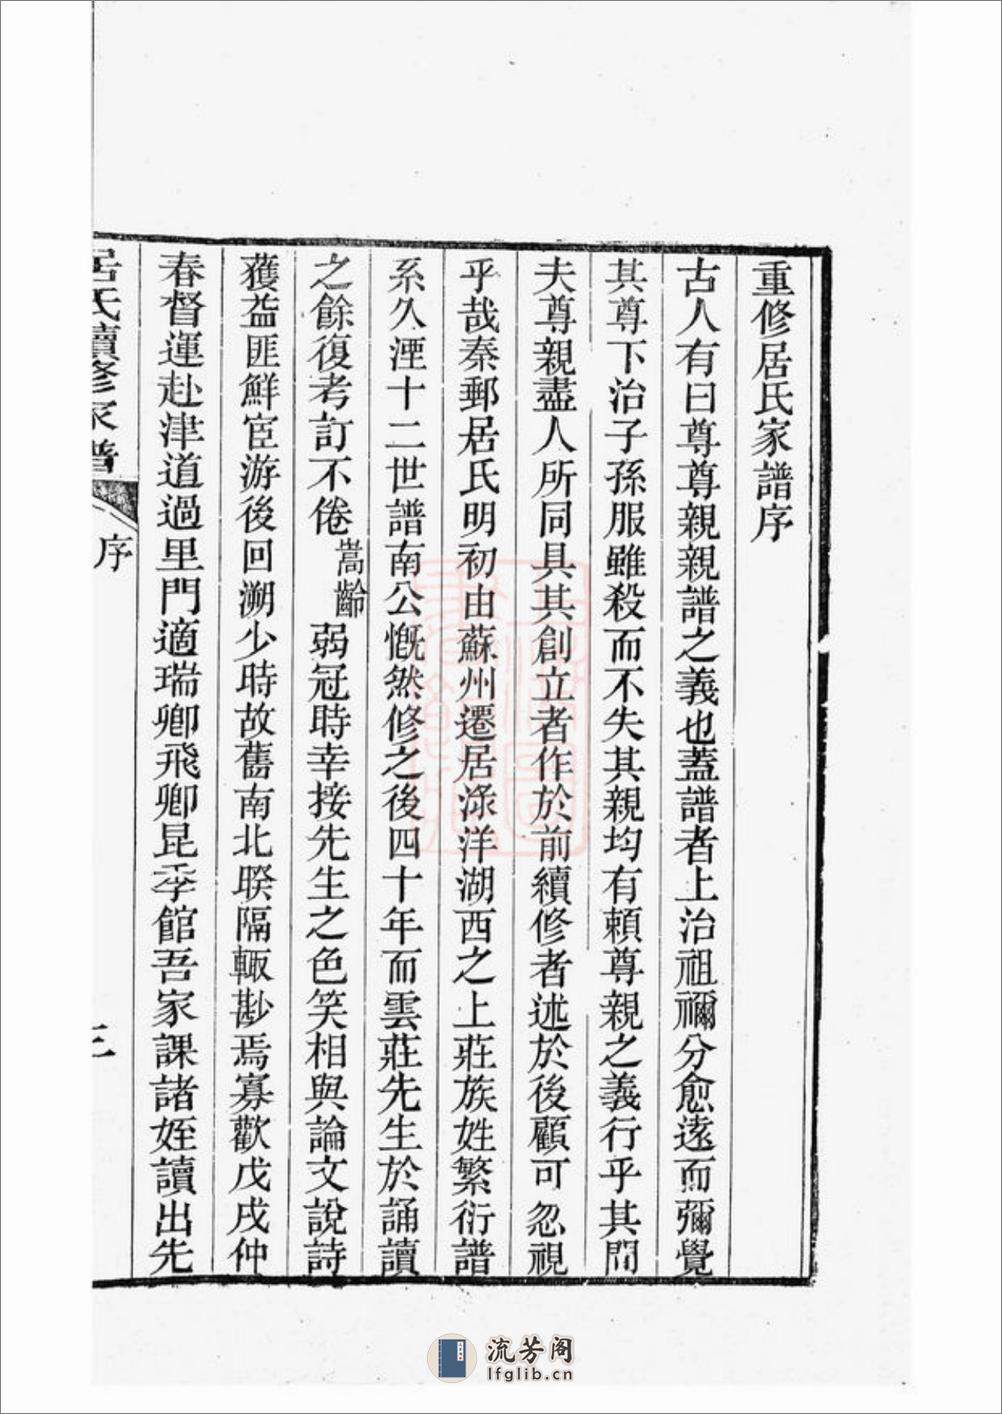 重修居氏家譜序
古人有曰尊尊親親譜之義也蓋譜者上治祖禰分愈遠而彌覺
其尊下治子孫服雖殺而不失其親均有賴尊親之義行乎其間
夫尊親盡人所同具其創立者作於前續修者述於後顧可忽視
乎哉秦郵居氏明初由蘇州遷居淥洋湖西之上莊族姓繁衍譜
系久湮十二世譜南公慨然修之後四十年而雲莊先生於誦讀
之餘復考訂不倦嵩齡弱冠時幸接先生之色笑相與論文說詩
獲益匪鮮宦游後回溯少時故舊南北暌隔輙尠焉寡歡戊戌仲
春督運赴津道過里門適瑞卿飛卿昆季館吾家課諸姪讀出先
居氏續修家譜
序
三
流芳阁
lfglib.cn